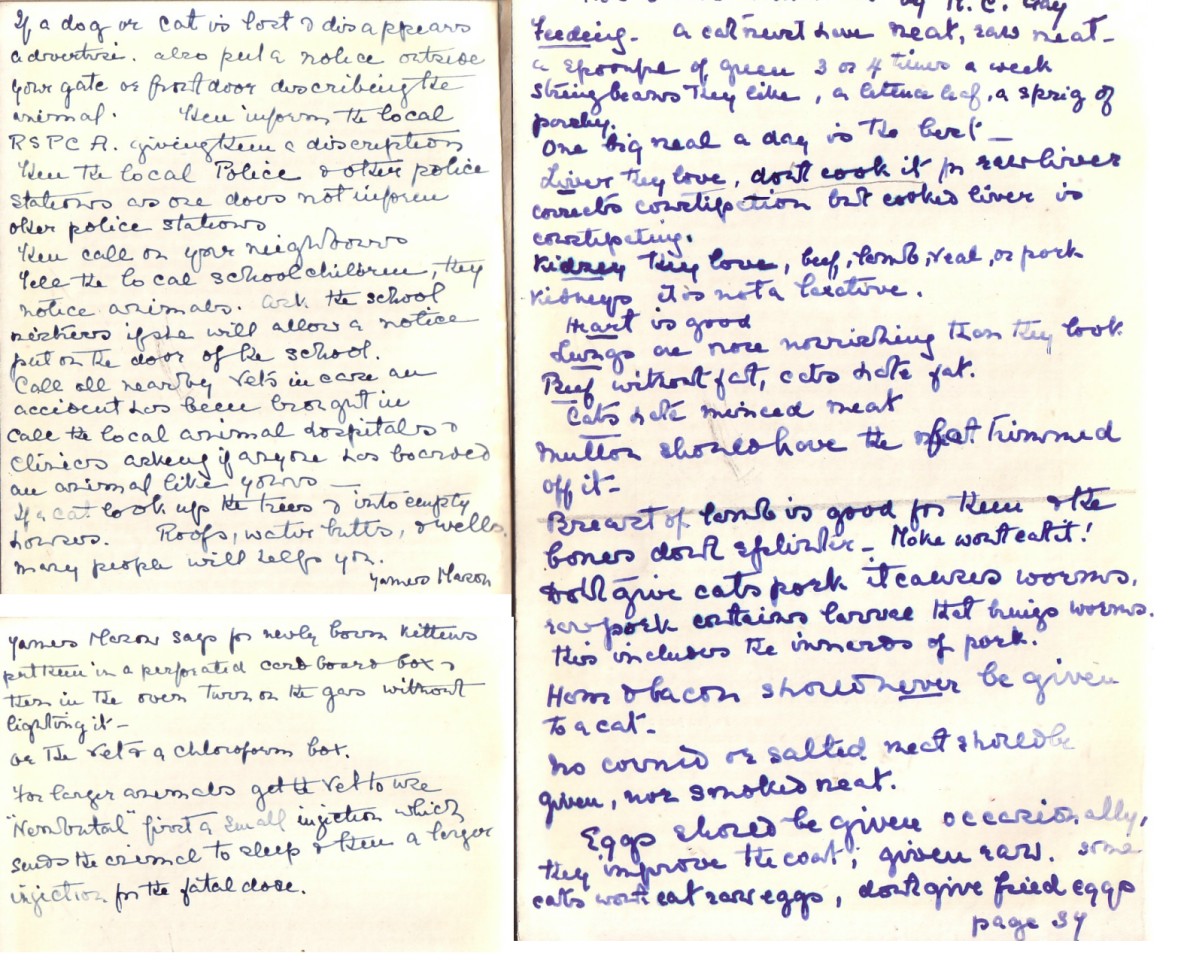 If a dog or cat is lost & disappears
advertise. also put a notice outside
your gate or front door describeing the
animal. Then inform the local
R S P C A. giving them a discreption
Then the local Police & other police
stations as one does not inform
other police stations
Then call on your neighbours
Tell the local schoolchildren, they
notice animals. Ask the school
mistress if she will allow a notice
put on the door of the school.
Call all nearby Vets in case an
accident has been brought in
Call the local animal hospitals &
Clinics asking if anyone has boarded
an animal like yours —
If a cat look up the trees & into empty
houses. Roofs, water butts, & wells,
many people will help you.
James Mason
James Mason says for newly born kittens
put them in a perforated card board box &
then in the oven turn on the gas without
lighting it —
or the vet & a chloroform box.
For larger animals get the Vet to use
"Nembutal" first a small injection which
sends the animal to sleep & then a larger
injection for the fatal dose.
by R. C. Gay
Feedeing — a cat must have meat, raw meat —
a spoonful of green 3 or 4 times a week
String beans they like, a lettuce leaf, a sprig of
parsley.
One big meal a day is the best —
Liver they love, dont cook it for raw liver
corrects constipation but cooked liver is
constipating.
Kidney they love, beef, lamb, veal, or pork
kidneys it is not a laxative.
Heart is good
Lungs are more nourishing than they look
Beef without fat, cats hate fat.
Cats hate minced meat
Mutton should have the fat trimmed
off it —
Breast of lamb is good for them & the
bones dont splinter — Moke wont eat it!
Dont give cats pork it causes worms,
raw pork contains larvae that brings worms.
this includes the innards of pork.
Ham & bacon should never be given
to a cat.
No corned or salted meat should be
given, nor smoked meat.
Eggs should be given occasionally,
they improve the coat; given raw. some
cats wont eat raw eggs, dont give fried eggs
page 34